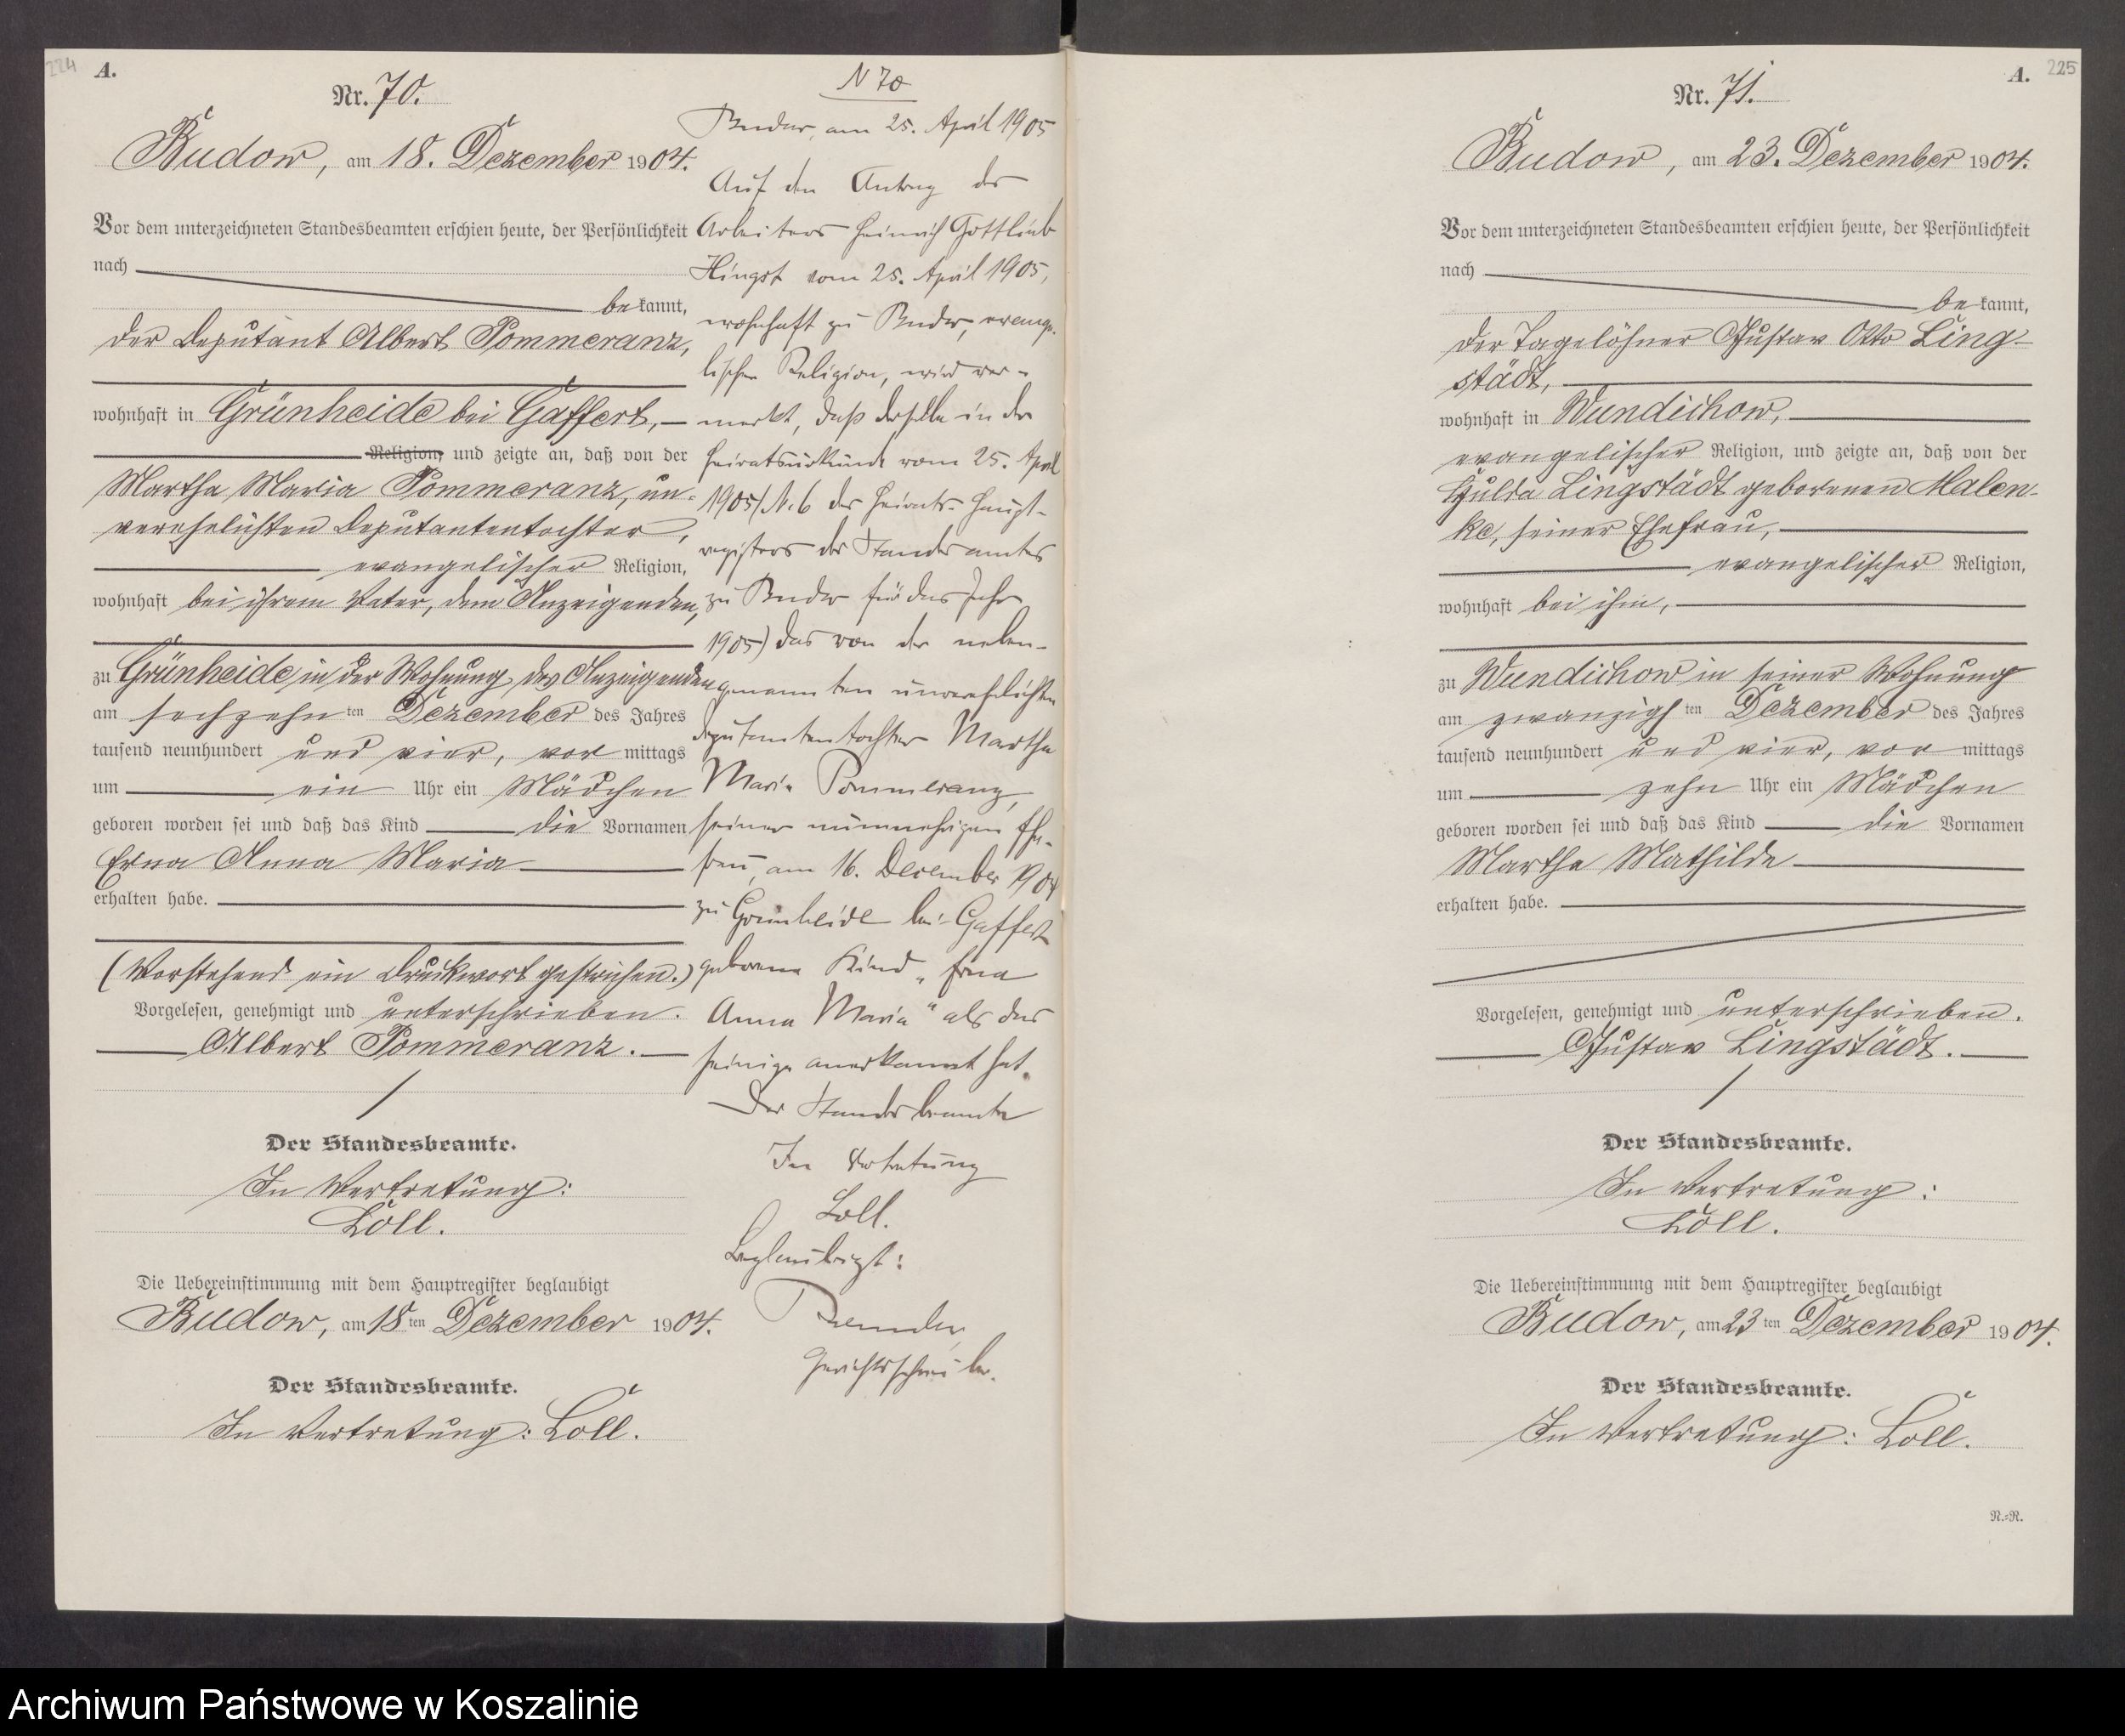 224
A.
Nr. 70.
Budow, am 18. Dezember 1904.
Vor dem unterzeichneten Standesbeamten erschien heute, der Persönlichkeit
nach
bekannt,
der Deputant Albert Pommeranz,
wohnhaft in Grünheide bei Gaffert,
Religion, und zeigte an, daß von der
Martha Maria Pommeranz, un-
verehelichten Deputantentochter,
evangelischer Religion,
wohnhaft bei ihrem Vater, dem Anzeigenden,
zu Grünheide in der Wohnung des Anzeigenden
am sechzehnten Dezember des Jahres
tausend neunhundert und vier, vormittags
um ein Uhr ein Mädchen
geboren worden sei und daß das Kind die Vornamen
Erna Anna Maria
erhalten habe.
(Vorstehend ein Druckwort gestrichen.)
Vorgelesen, genehmigt und unterschrieben.
Albert Pommeranz.
Der Standesbeamte.
In Vertretung:
Loll.
Die Uebereinstimmung mit dem Hauptregister beglaubigt
Budow, am 18ten Dezember 1904.
Der Standesbeamte.
In Vertretung: Loll.
N 70
Budow, am 25. April 1905
Auf den Antrag des
Arbeiters Heinrich Gottlieb
Hingst vom 25. April 1905,
wohnhaft zu Budow, evange-
lischer Religion, wird ver-
merkt, daß derselbe in der
Heiratsurkunde vom 25. April
1905 (N. 6 des Heirats-Haupt-
registers des Standesamtes
zu Budow für das Jahr
1905) das von der neben-
genannten unverehelichten
Deputantentochter Martha
Maria Pommeranz,
seiner nunmehrigen Ehe-
frau, am 16. Dezember 1904
zu Grünheide bei Gaffert
geborene Kind „Erna
Anna Maria" als das
seinige anerkannt hat.
Der Standesbeamte
In Vertretung
Loll.
Beglaubigt:
Gerichtsschreiber.
225
A.
Nr. 71.
Budow, am 23. Dezember 1904.
Vor dem unterzeichneten Standesbeamten erschien heute, der Persönlichkeit
nach
bekannt,
der Tagelöhner Gustav Otto Ling-
städt,
wohnhaft in Wundichow,
evangelischer Religion, und zeigte an, daß von der
Hulda Lingstädt geborenen Malen-
ke, seiner Ehefrau,
evangelischer Religion,
wohnhaft bei ihm,
zu Wundichow in seiner Wohnung
am zwanzigsten Dezember des Jahres
tausend neunhundert und vier, vormittags
um zehn Uhr ein Mädchen
geboren worden sei und daß das Kind die Vornamen
Martha Mathilde
erhalten habe.
Vorgelesen, genehmigt und unterschrieben.
Gustav Lingstädt.
Der Standesbeamte.
In Vertretung:
Loll.
Die Uebereinstimmung mit dem Hauptregister beglaubigt
Budow, am 23ten Dezember 1904.
Der Standesbeamte.
In Vertretung: Loll.
N.=R.
Archiwum Państwowe w Koszalinie